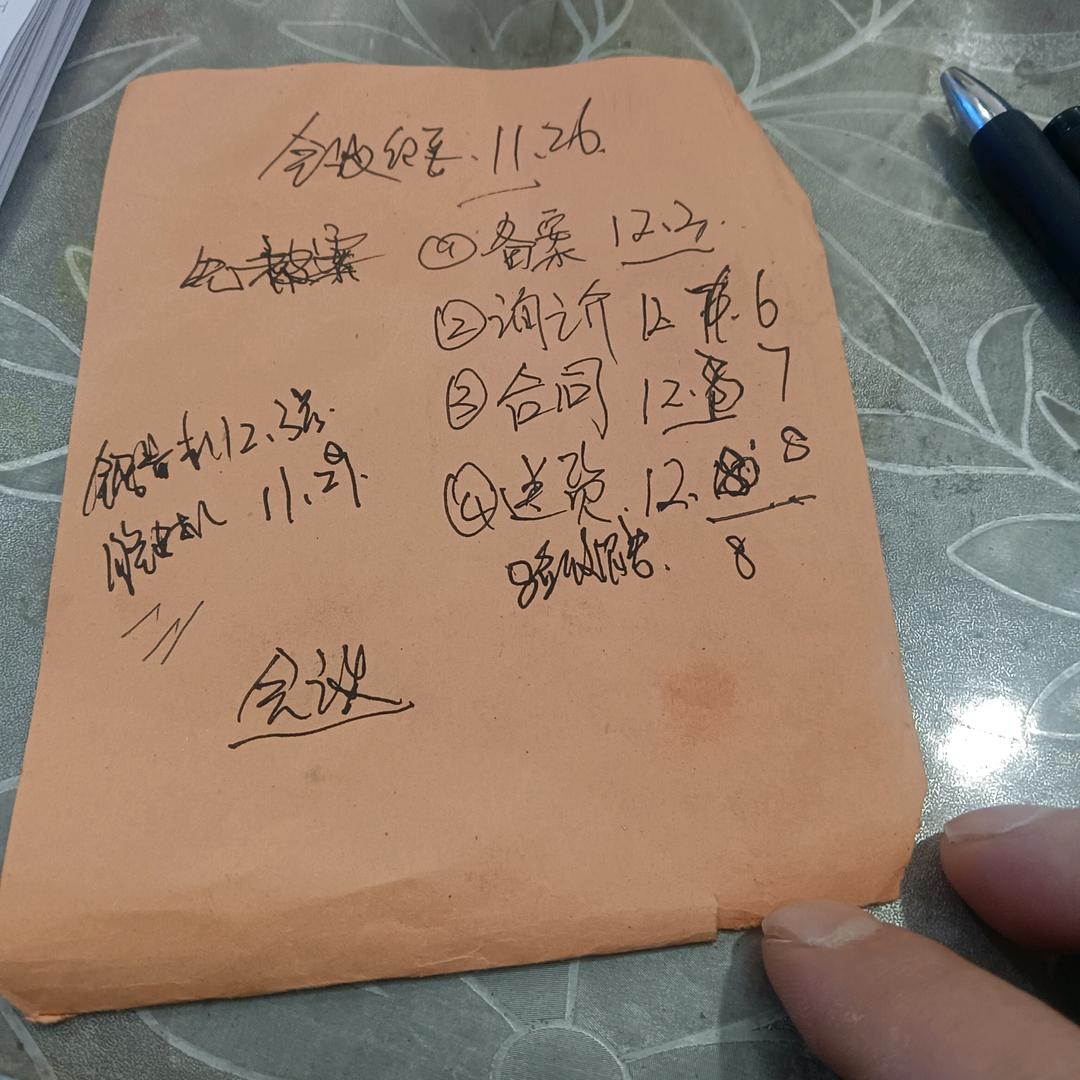 会议纪要.11.26.
①备案 12.2.
②询价 12.6
③合同 12.7
④送货.12.8
8
机12.3
机 11.29.
会议